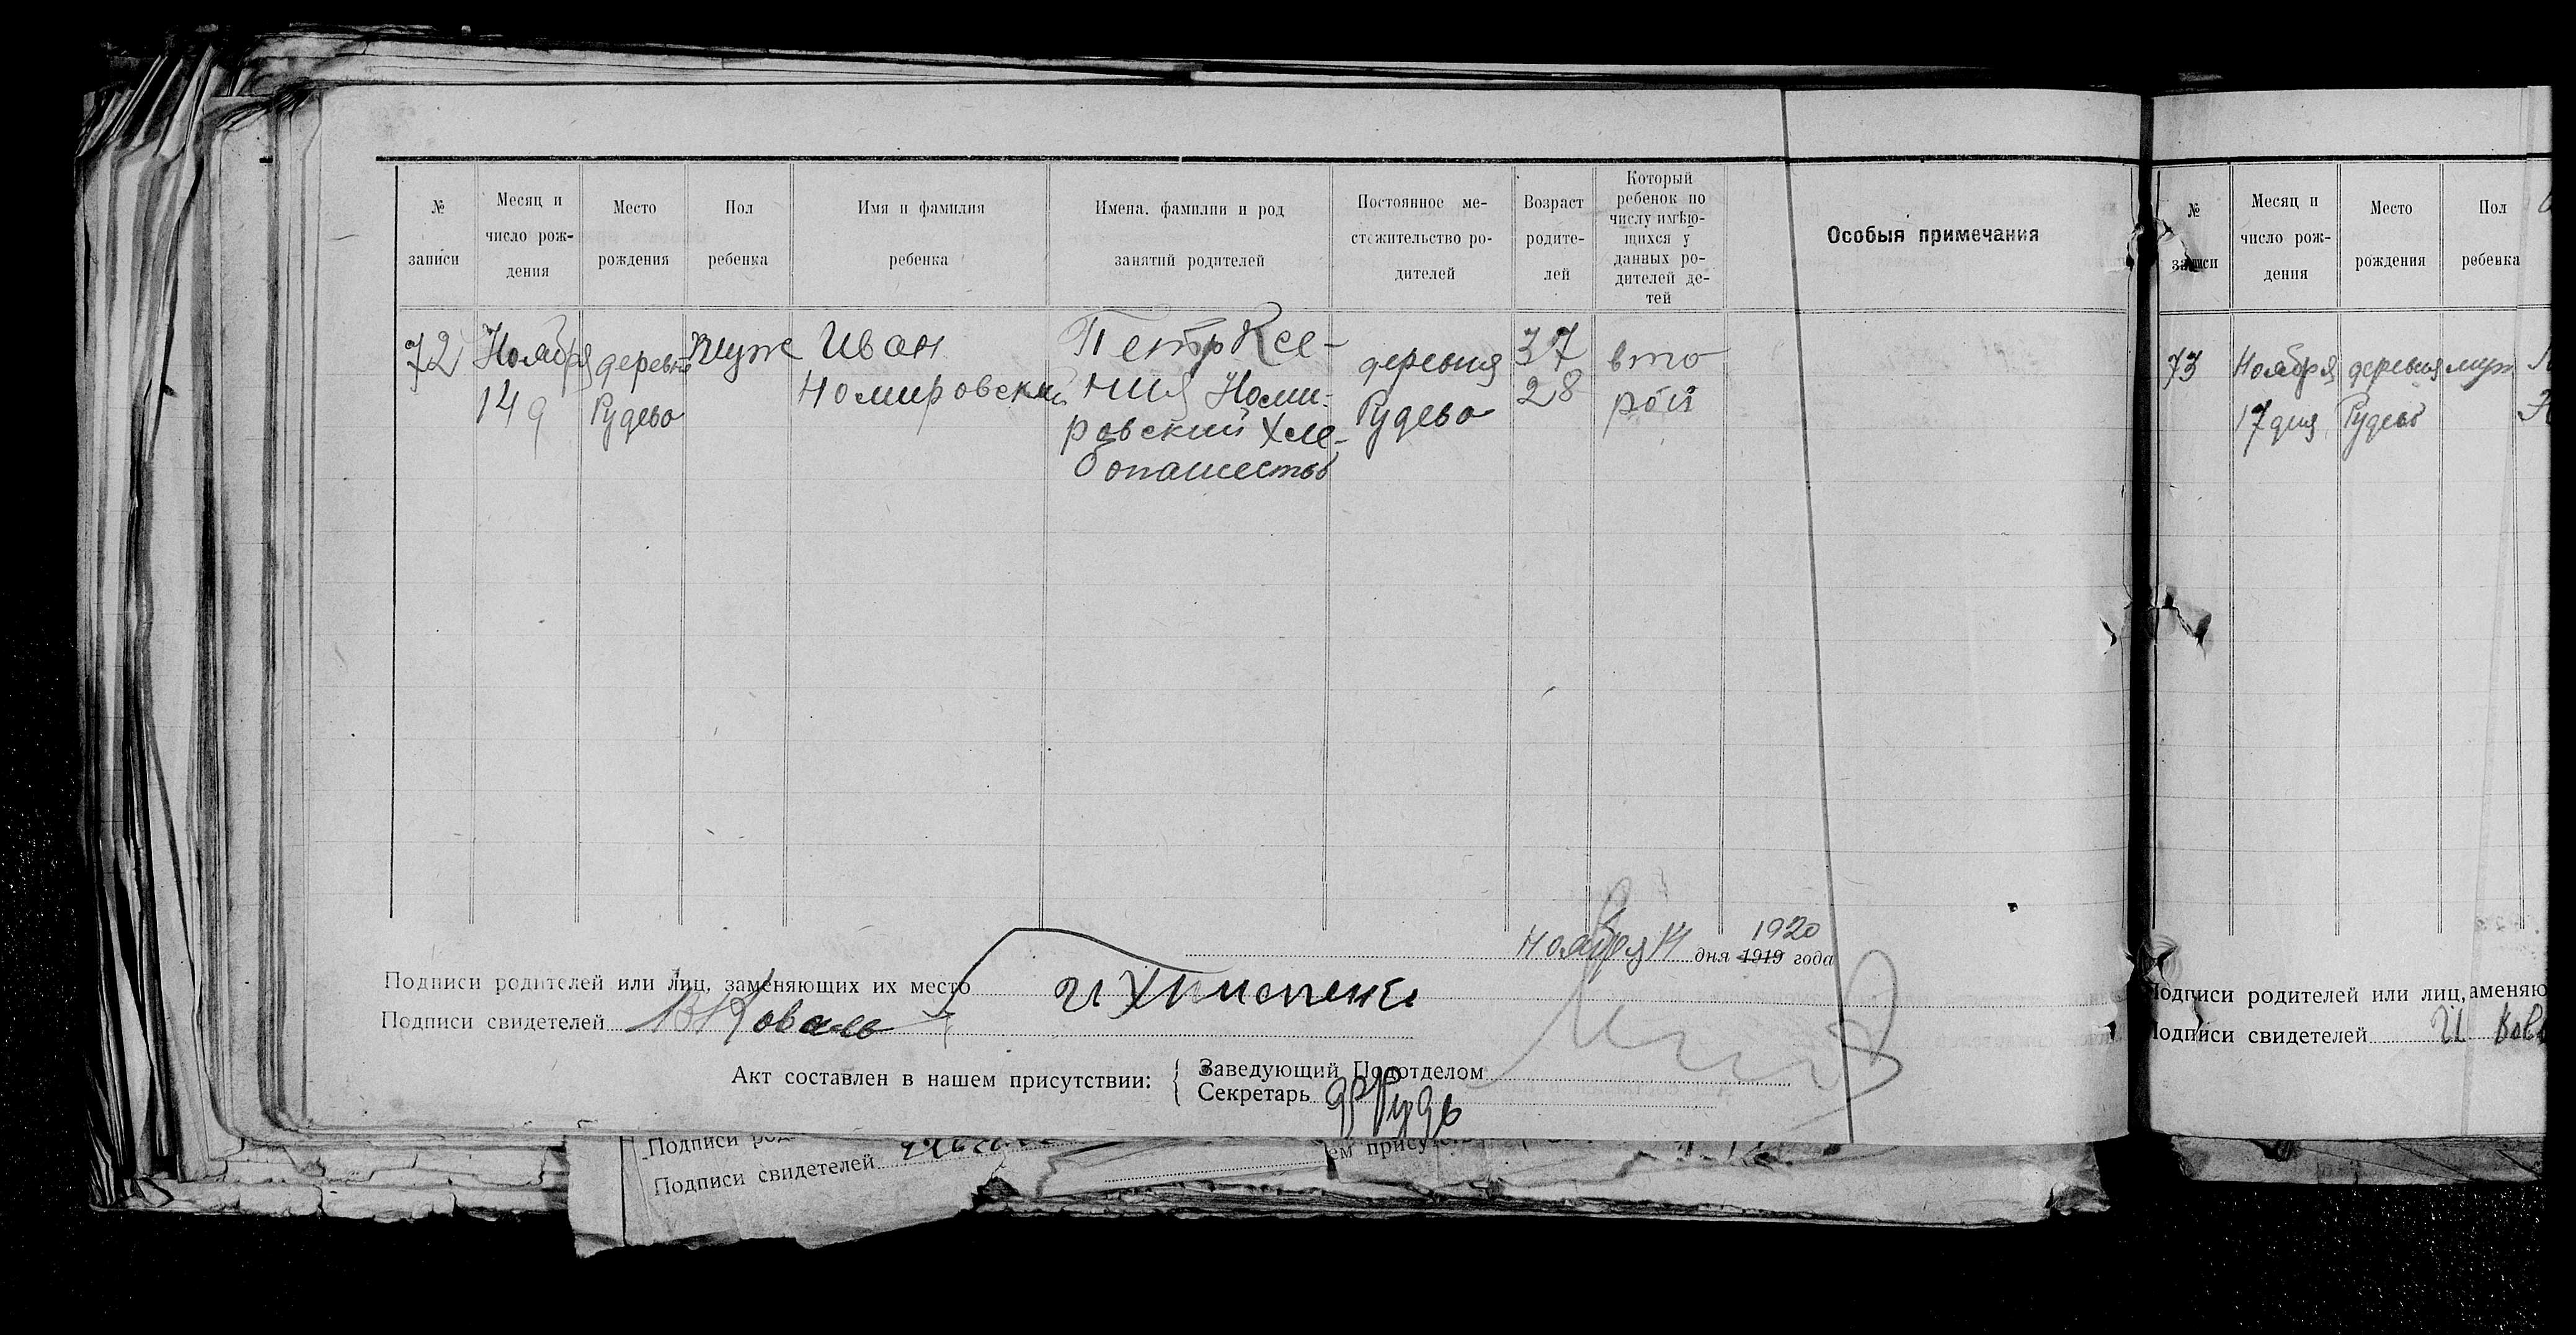 №
записи
Месяц и
число рож-
дения
Место
рождения
Пол
ребенка
Имя и фамилия
ребенка
Имена, фамилии и род
занятий родителей
Постоянное ме-
стожительство ро-
дителей
Возраст
родите-
лей
Который
ребенок по
числу имѣю-
щихся у
данных ро-
дителей де-
тей
Особыя примечания
72
Ноября
14 д
деревня
Рудево
муж
Иван
Номировский
Петр Ксе-
ния Номи-
ровский Хле-
бопашество
деревня
Рудево
37
28
вто
рой
Ноября 14 дня 1919 года
1920
Подписи родителей или лиц, заменяющих их место
Подписи свидетелей В Коваль
Акт составлен в нашем присутствии:
Заведующий Подотделом
Секретарь
Подписи
Подписи свидетелей
ем
№
записи
Месяц и
число рож-
дения
Место
рождения
Пол
ребенка
73
Ноября
17 дня
деревня
Рудево
муж
Подписи родителей или лиц, аменяю
Подписи свидетелей И